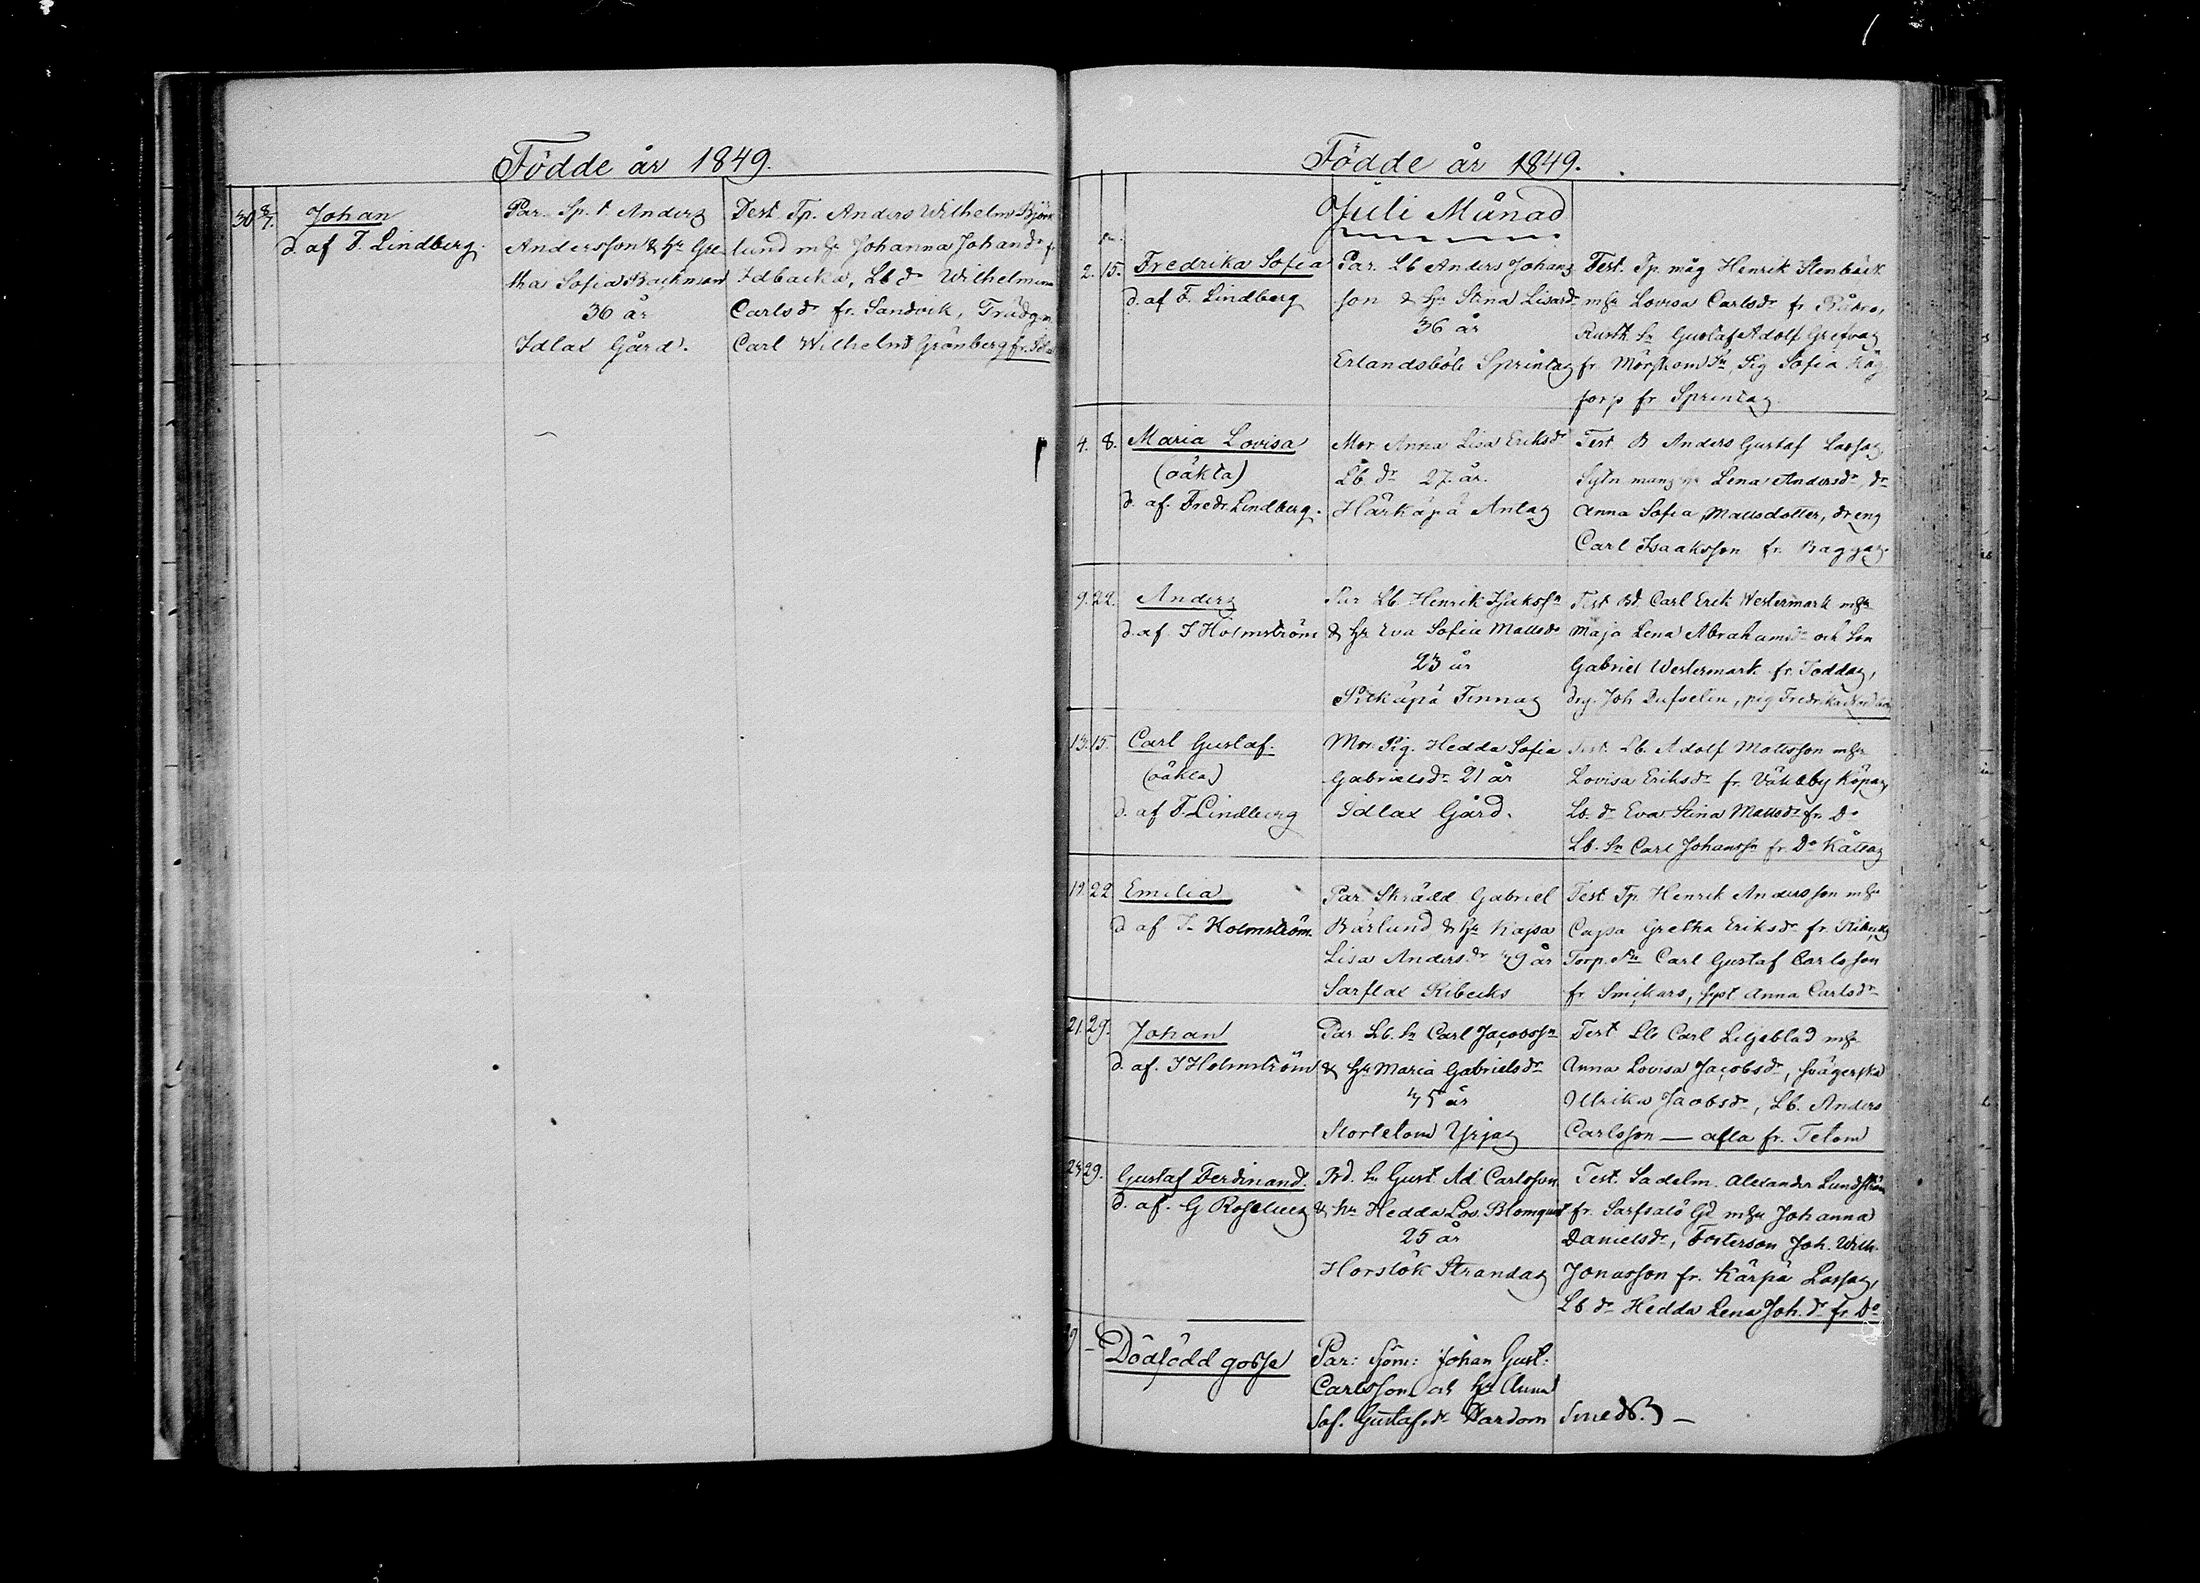 Födde år 1849.
30 8/7. Johan
d. af F. Lindberg.
Par. Sp. t. Anders
Andersson & Hr Gre
tha Sofia Backman
36 år
Idlax Gård.
Test. Tp. Anders Wilhelm Björk
lund mhr Johanna Johansdr fr
Idbacka, Lb dr Wilhelmina
Carlsdr fr. Sandvik, Trädgm
Carl Wilhelm Grönberg fr. Idlax
Födde år 1849.
Juli Månad
2. 15. Fredrika Sofia
d. af F. Lindberg
Par. Lb Anders Johans
son & Hr Stina Lisa
36 år
Erlandsböle Sprintas
Test. Tp. måg Henrik Stenbäck
mhr Lovisa Carlsdr fr
Rusth. Sn Gustaf Adolf
fr. Mörskom Sn, Pig Sofia
fr Sprintas
4. 8. Maria Lovisa
(oäkta)
d. af. Fredr. Lindberg.
Mor. Anna Lisa Eriksdr
Lb. dr 27. år.
Härkäpä Antas
Test. B. Anders Gustaf Lassas
Lena Andersdr, dr
Anna Sofia Mattsdotter, dreng
Carl Isaaksson fr. Baggas
9. 22. Anders
d. af. I Holmström
Par Lb. Henrik
& Hr Eva Sofia Mattsdr
23 år
Finnas
Test. Bd. Carl Erik Westermark mhr
Maja Lena Abrahamsdr och Son
Gabriel Westermark fr. Toddas,
drg. Joh pig Fredrika
13. 15. Carl Gustaf.
(oäkta)
d. af F. Lindberg
Mor. Pig. Hedda Sofia
Gabrielsdr 21 år
Idlax Gård.
Test. Lb. Adolf Mattsson mhr
Lovisa Eriksdr fr. Köpas
Lb. dr Eva Stina Mattsdr fr. Do
Lb. Sn Carl Johanssn fr. Do
19 22 Emilia
d af I. Holmström.
Par. Skrädd Gabriel
Bärlund & Hr Kajsa
Lisa Andersdr 39 år
Sarflax Ribecks
Test Tp. Henrik Andersson mhr
Cajsa Gretha Eriksdr fr.
Torp. Sn Carl Gustaf Carlsson
fr Anna Carlsdr
21. 29. Johan
d. af. I Holmström
Par. Lb. Sn Carl Jacobssn
& Hr Maria Gabrielsdr
35 år
Stortetom Yrjas
Test Lb Carl Liljeblad mhr
Anna Lovisa Jacobsdr, svägerska
Ulrika Jacobsdr, Lb. Anders
Carlsson — alla fr. Tetom
29. Gustaf Ferdinand.
d. af. G
Bd. Sn Gust. Ad. Carlsson
& Hr Hedda Lov. Blomqvist
25 år
Horslök Strandas
Test. Sadelm. Alexander Lundström
fr. Sarfsalö Gd mhr Johanna
Danielsdr, Fosterson Joh. Wilh.
Jonasson fr. Kärpä Lassas,
Lb dr Hedda Lena Joh. dr fr. Do
— Dödfödd gosse
Par: Johan Gust:
Carlsson och Hr Anna
Sof. Gustafsdr Hardom Smeds. —